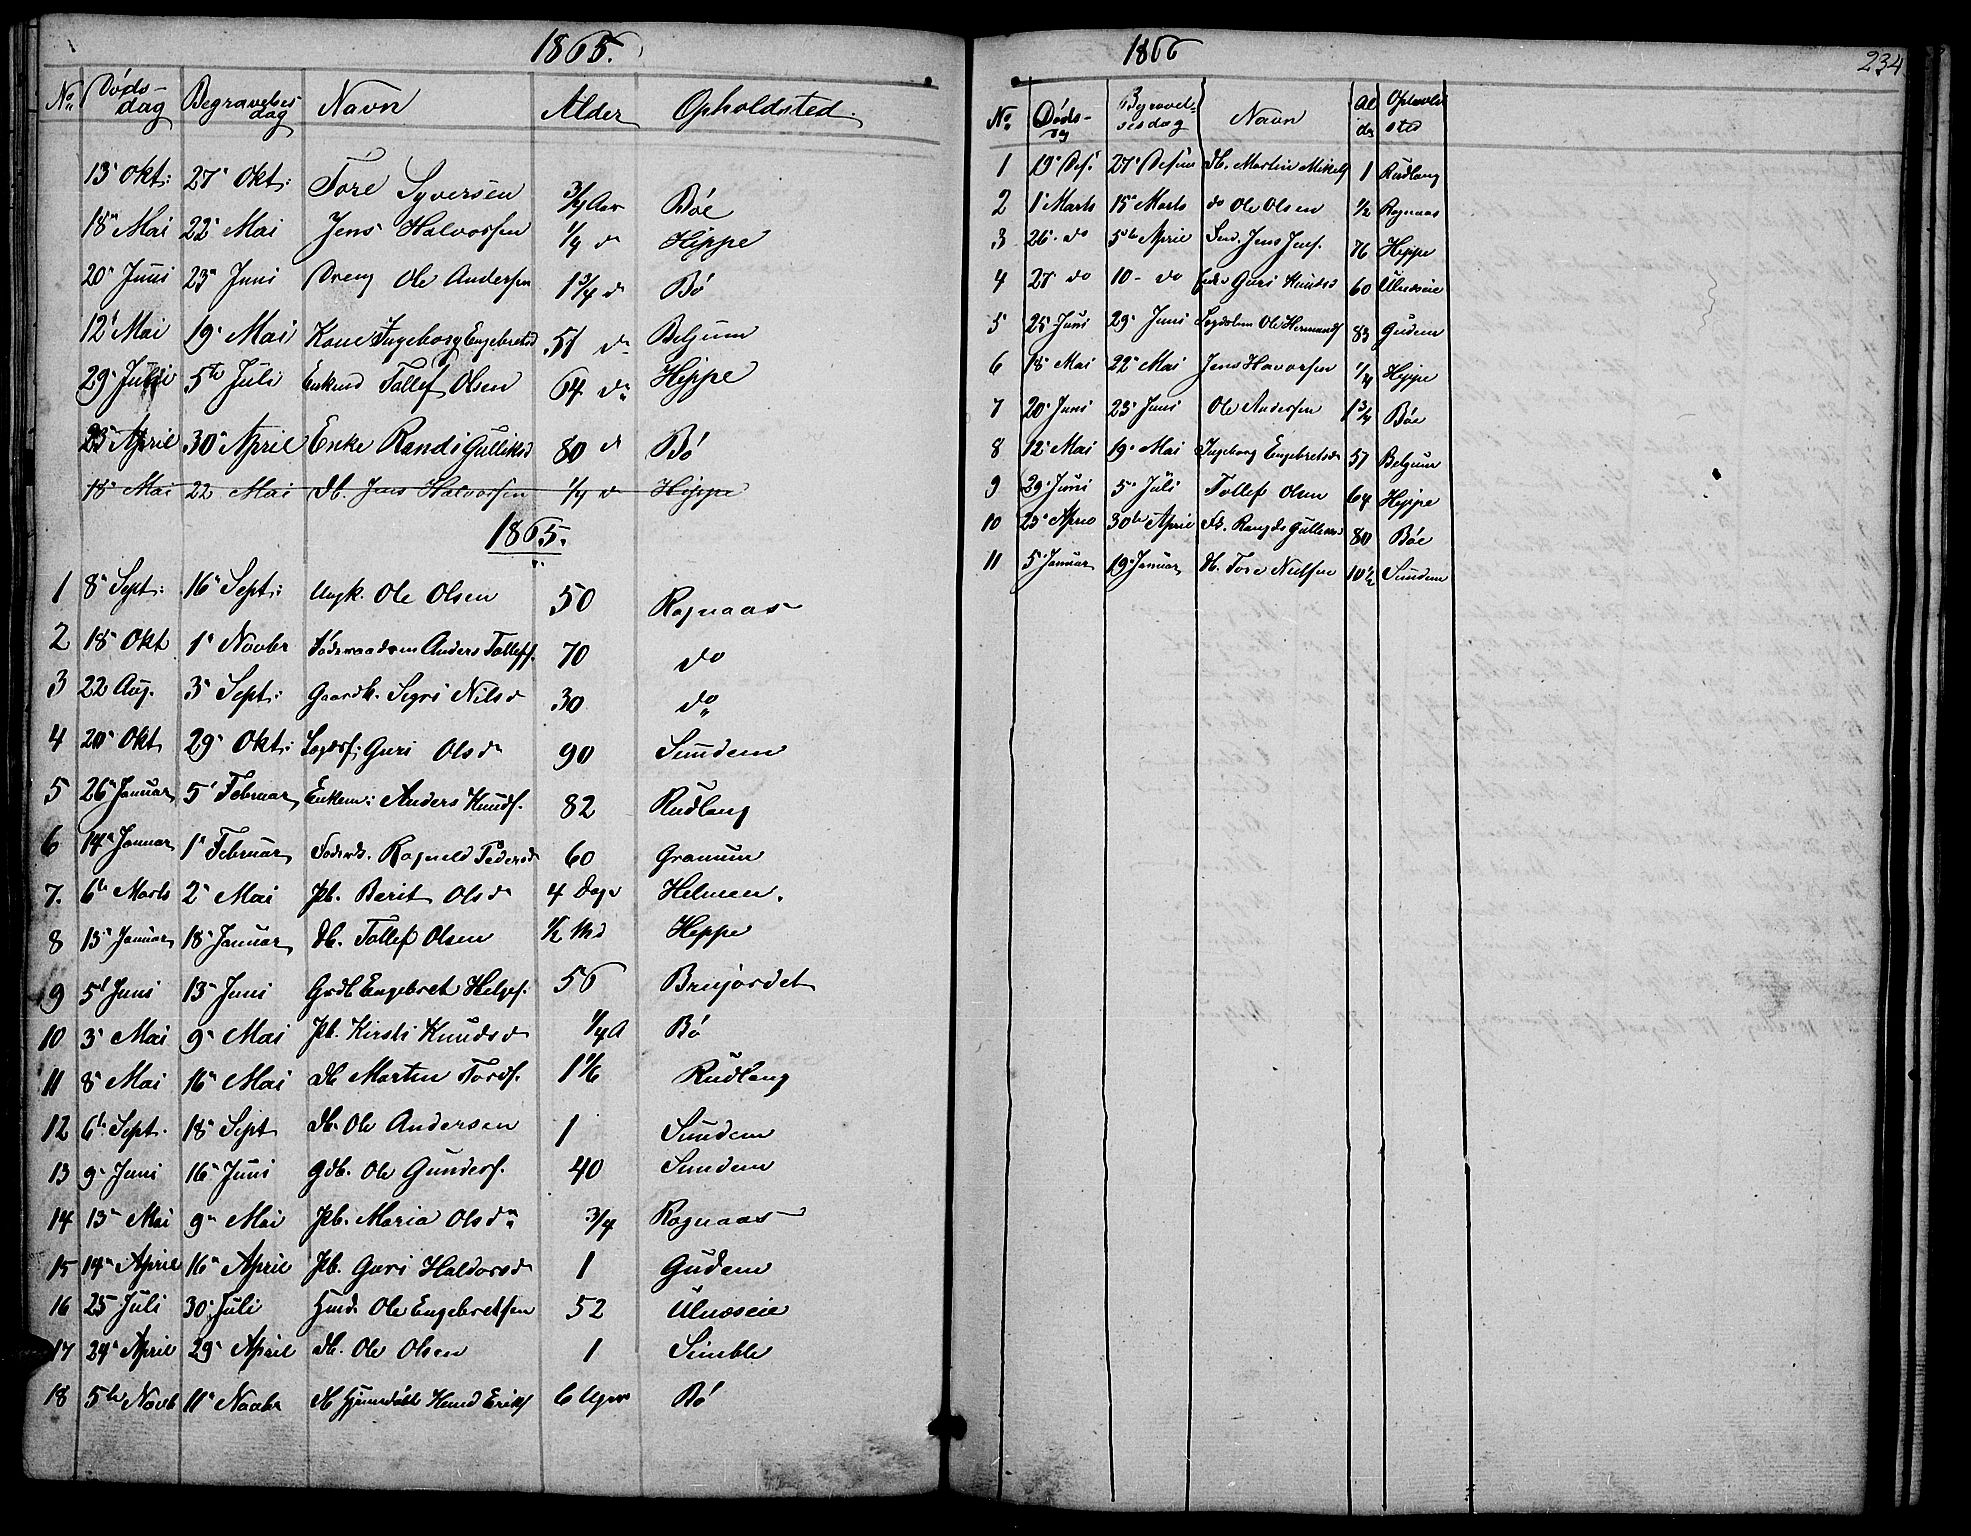 1865.
No. Døds-dag Begravelsesdag Navn Alder Opholdsted.
13 Okt: 27 Okt: Tore Syversen 3/4 Aar Bøe
18 Mai 22 Mai Jens Halvorsen 1/4 d Heppe
20 Juni 23 Juni Dreng Ole Andersen 1 3/4 d Bø
12 Mai 19 Mai Kone Ingeborg Engebretsd 57 do Belgum
29 Juni 5te Juli Enkmd Tollef Olsen 64 do Heppe
23 April 30 April Enke Randi Gulliksd 80 d Bø
18 Mai 22 Mai Db. Jens Halvorsen 1/4 d Heppe
1865.
1 8 Sept: 16 Sept: Ungk. Ole Olsen 50 Rognaas
2 18 Okt 1 Novbr Føderaadsm Anders Tollefs. 70 do
3 22 Aug. 3 Sept: Gaardk. Sigri Nilsd 30 do
4 20 Okt 29 Okt: Lægdsf. Guri Olsd 90 Sundem
5 26 Januar 5 Februar Enkem: Anders Knuds. 82 Rudlang
6 14 Januar 1 Februar Føderk. Ragnild Pedersd 60 Granum
7. 6te Marts 2 Mai Pb. Berit Olsd 4 Dage Helmen.
8 13 Januar 18 Januar Db. Tollef Olsen 1/2 Md Heppe
9 5te Juni 13 Juni Grdb Engebret Helges. 56 Brujordet
10 3 Mai 9 Mai Pb. Kirsti Knudsd 1/4 A Bø
11 8 Mai 16 Mai Db Martin Tords. 1 1/6 Rudlang
12 6te Sept. 18 Sept Db. Ole Andersen 1 Sundem
13 9 Juni 16 Juni Gdb. Ole Gunders. 40 Sundem
14 13 Mai 9 Mai Pb. Maria Olsd 3/4 Rognaas
15 14 April 16 April Pb. Guri Haldorsd 1 Gudem
16 25 Juli 30 Juli Hmd. Ole Engebretsen 52 Ulnæseie
17 24 April 29 April Db. Ole Olsen 1 Semble
18 5te Novb 11 Novbr Db Knud Eriks 6 Uger Bø
1866
234
No. Døds-dag Begravelsesdag Navn Alder Opholdsted
1 19 Des. 27 Desem Db. Martin Mikels 1 Rudlang
2 1 Marts 15 Marts do Ole Olsen 1/2 Rognaas
3 26 do 5te April Jens Jens. 76 Heppe
4 27 do 10 do Enke Guri Knudsd 60 Ulnæseie
5 25 Juni 29 Juni Lægdslem Ole Hermands 83 Gudem
6 18 Mai 22 Mai Jens Havorsen 1/4 Heppe
7 20 Juni 23 Juni Ole Andersen 1 3/4 Bøe
8 12 Mai 19 Mai Ingeborg Engebretsd 57 Belgum
9 29 Juni 5 Juli Tollef Olsen 64 Heppe
10 23 April 30te April Gulliksd 80 Bøe
11 5 Januar 19 Januar Db. Tore Nielsen 10 1/2 Sundem